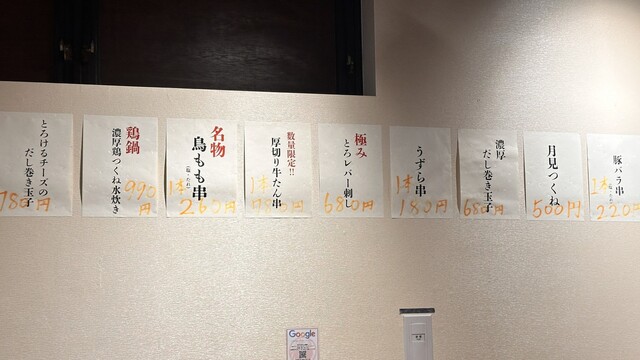 とろけるチーズの
だし巻き玉子
780円
鶏鍋
濃厚鶏つくね水炊き
990
円
名物
鳥もも串
1本
260円
数量限定!!
厚切り牛たん串
1本
780円
極み
とろレバー刺し
680円
うずら串
1本
180円
濃厚
だし巻き玉子
680円
月見つくね
500円
豚バラ串
1本
220円
Google